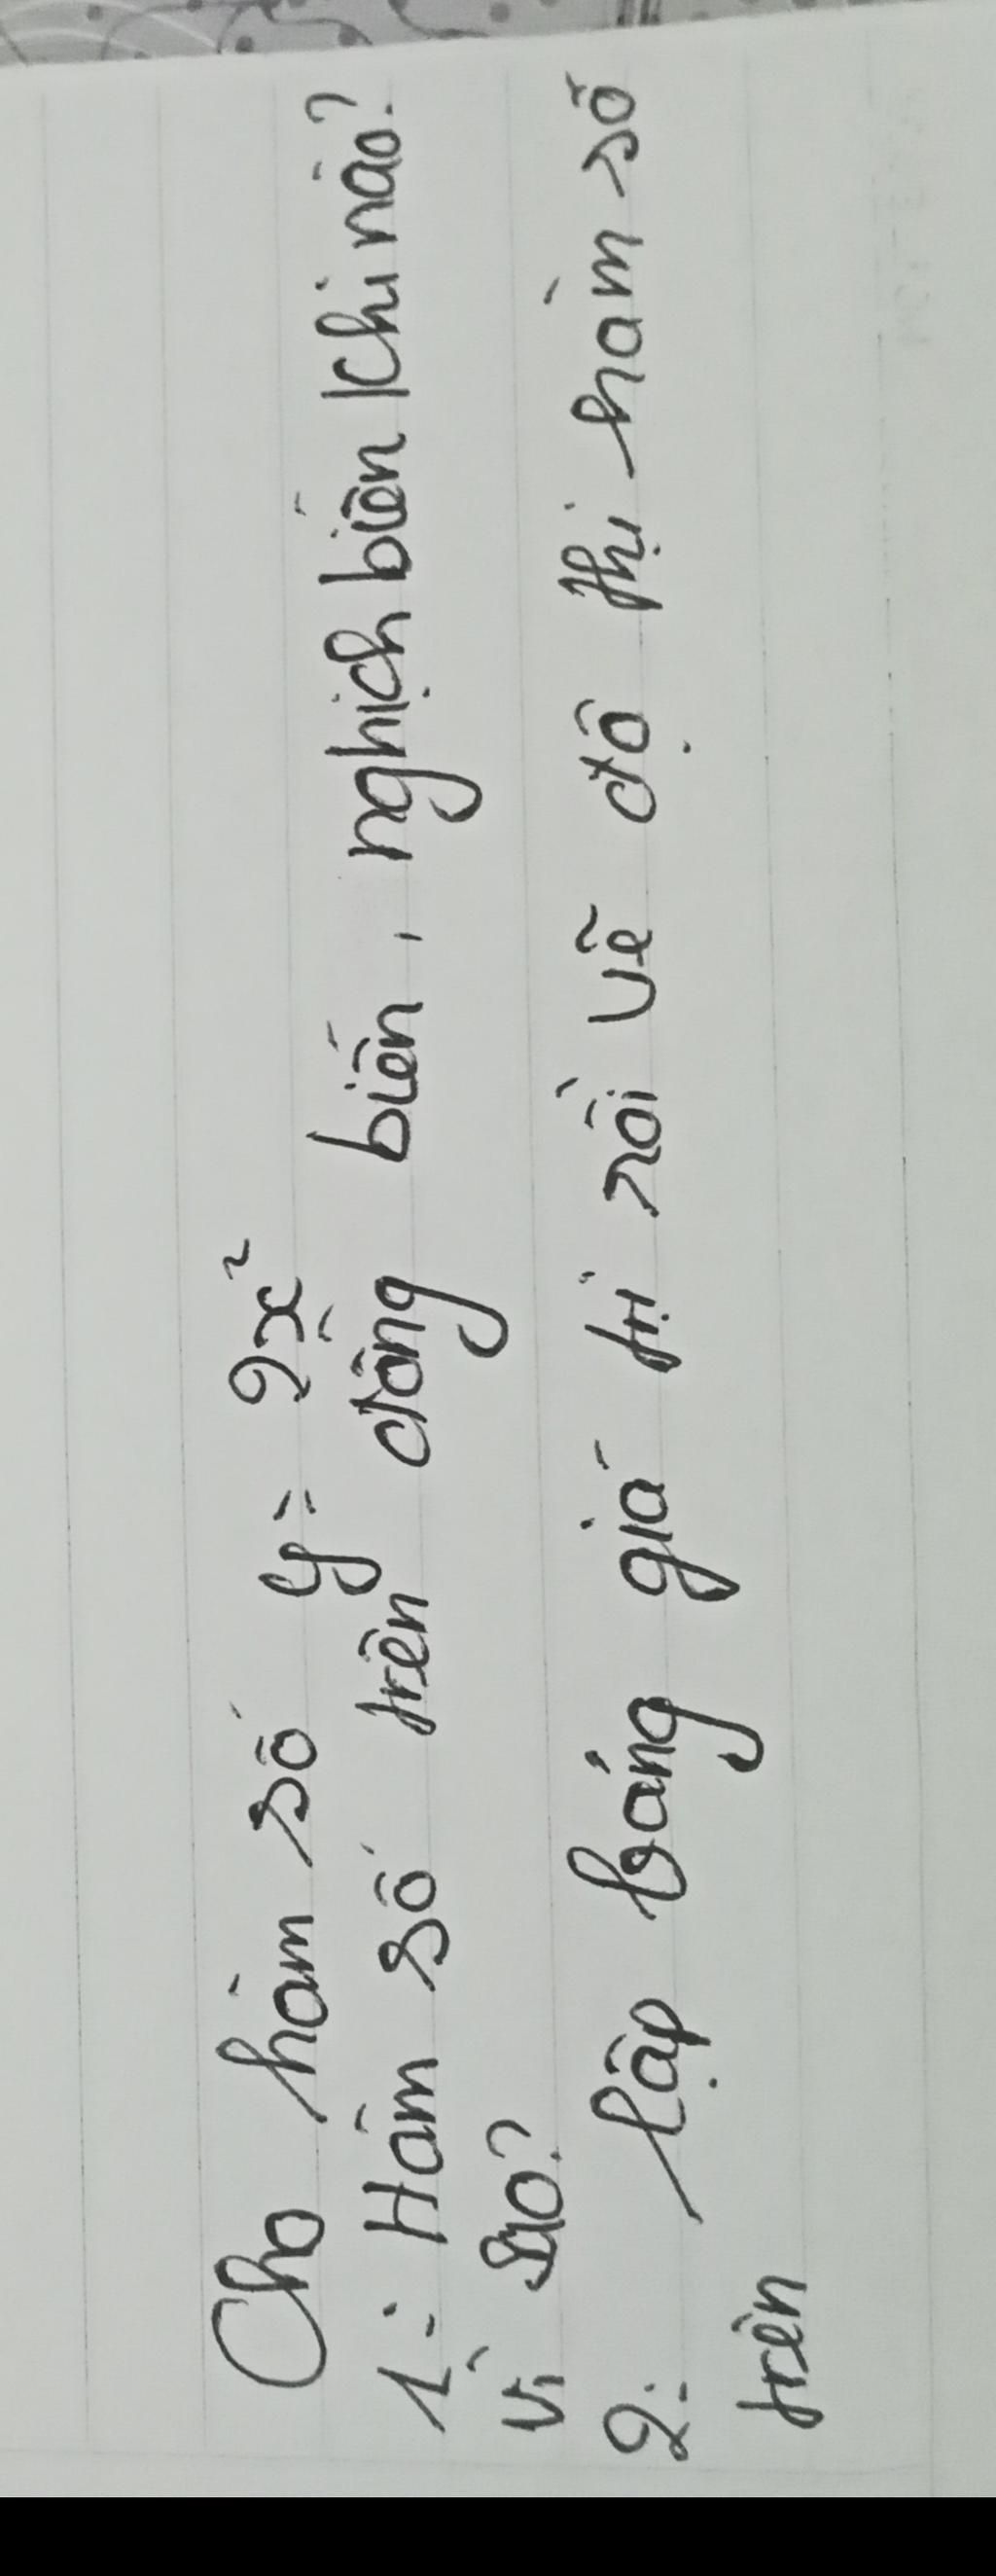 Cho hàm số y = 2x²
1: Hàm số trên đồng biến, nghịch biến khi nào?
Vì sao?
2: Lập bảng giá trị rồi vẽ độ thị hàm số
trên